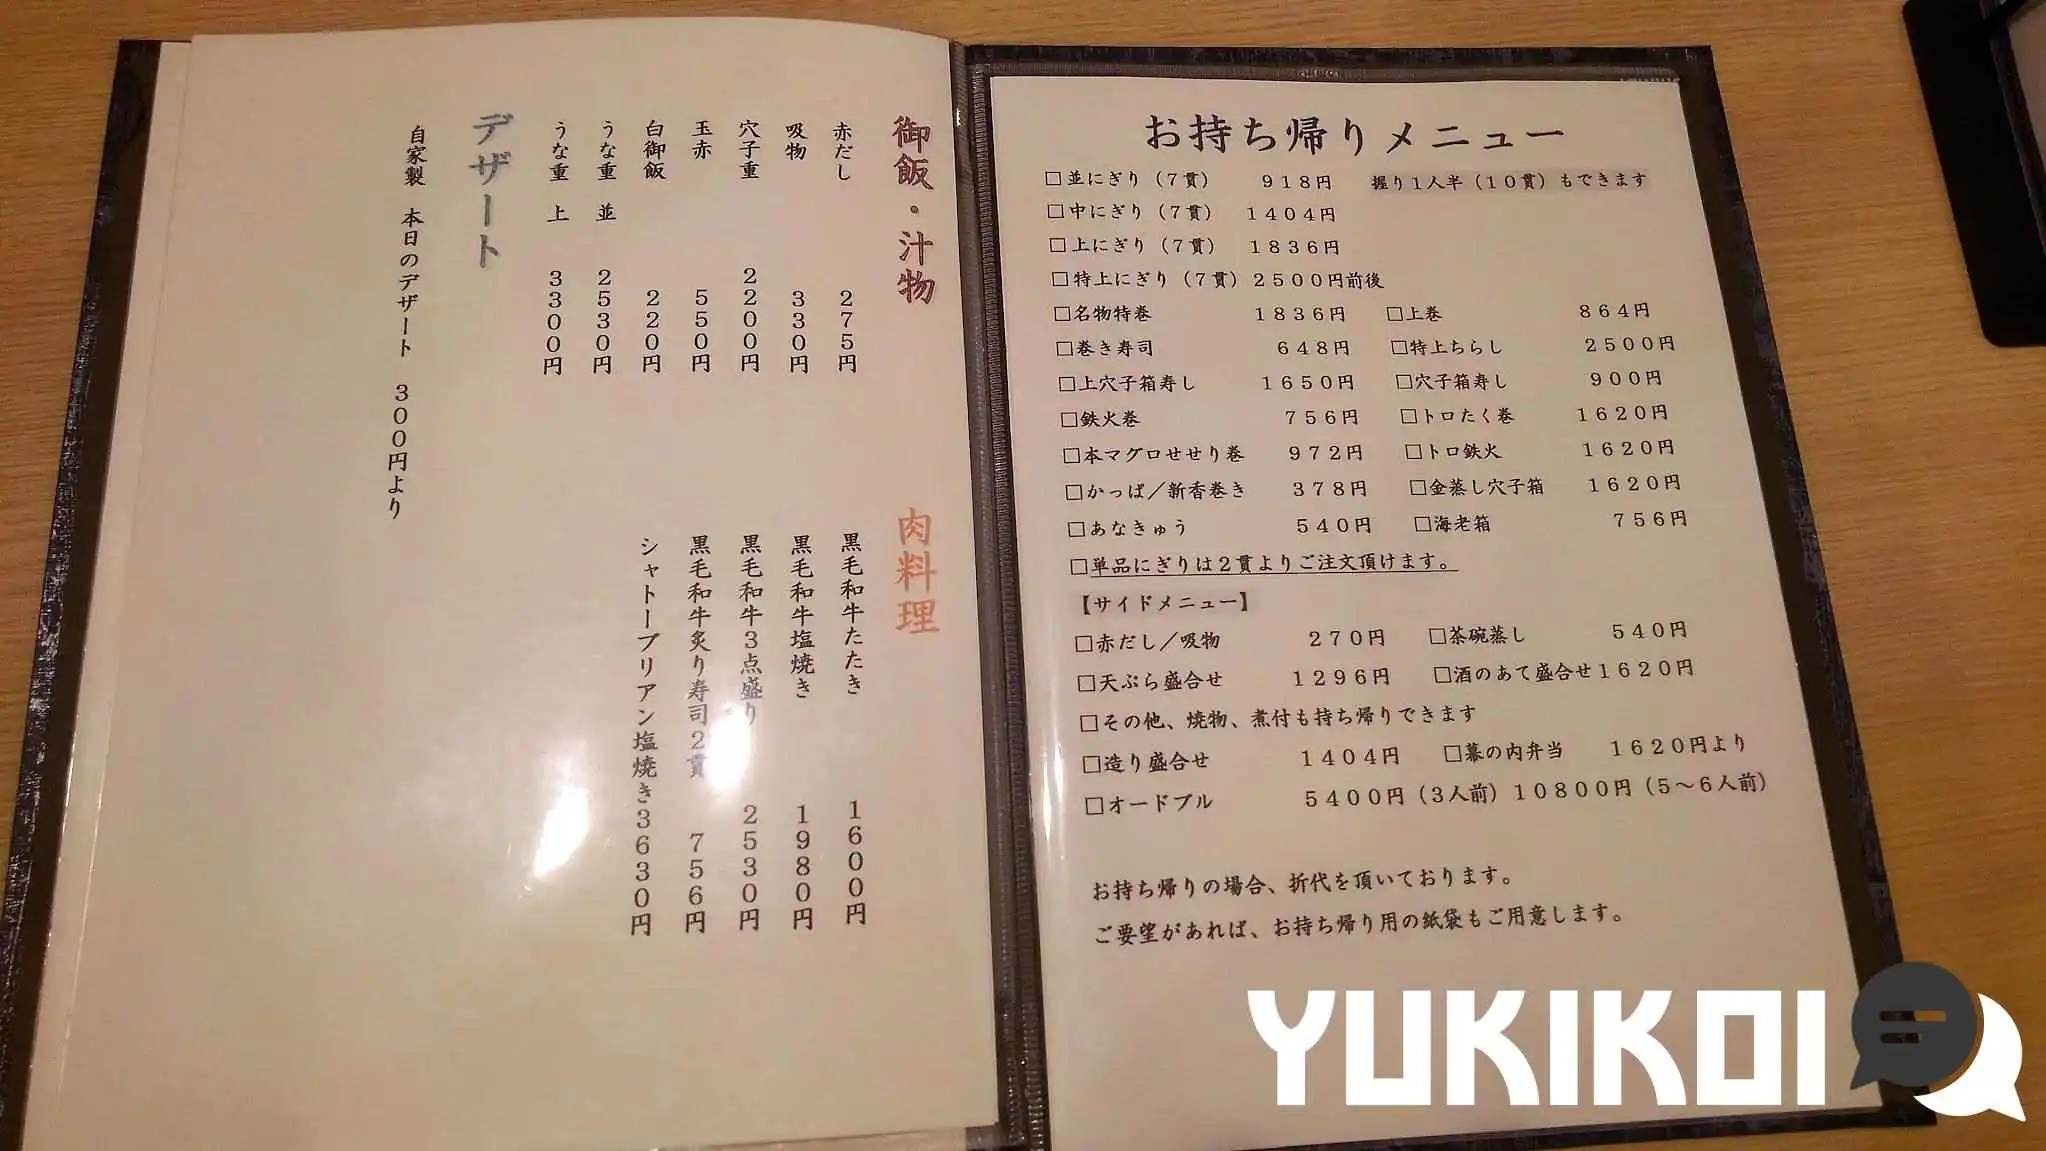 御飯・汁物
赤だし 275円
吸物 330円
穴子重 2200円
玉赤 550円
白御飯 220円
うな重 並 2530円
うな重 上 3300円
デザート
自家製 本日のデザート 300円より
肉料理
黒毛和牛たたき 1600円
黒毛和牛塩焼き 1980円
黒毛和牛3点盛り 2530円
黒毛和牛炙り寿司2貫 756円
シャトーブリアン塩焼き3630円
お持ち帰りメニュー
□並にぎり（7貫） 918円 握り1人半（10貫）もできます
□中にぎり（7貫） 1404円
□上にぎり（7貫） 1836円
□特上にぎり（7貫）2500円前後
□名物特巻 1836円 □上巻 864円
□巻き寿司 648円 □特上ちらし 2500円
□上穴子箱寿し 1650円 □穴子箱寿し 900円
□鉄火巻 756円 □トロたく巻 1620円
□本マグロせせり巻 972円 □トロ鉄火 1620円
□かっぱ／新香巻き 378円 □金蒸し穴子箱 1620円
□あなきゅう 540円 □海老箱 756円
□単品にぎりは2貫よりご注文頂けます。
【サイドメニュー】
□赤だし／吸物 270円 □茶碗蒸し 540円
□天ぷら盛合せ 1296円 □酒のあて盛合せ1620円
□その他、焼物、煮付も持ち帰りできます
□造り盛合せ 1404円 □幕の内弁当 1620円より
□オードブル 5400円（3人前）10800円（5～6人前）
お持ち帰りの場合、折代を頂いております。
ご要望があれば、お持ち帰り用の紙袋もご用意します。
YUKIKOI